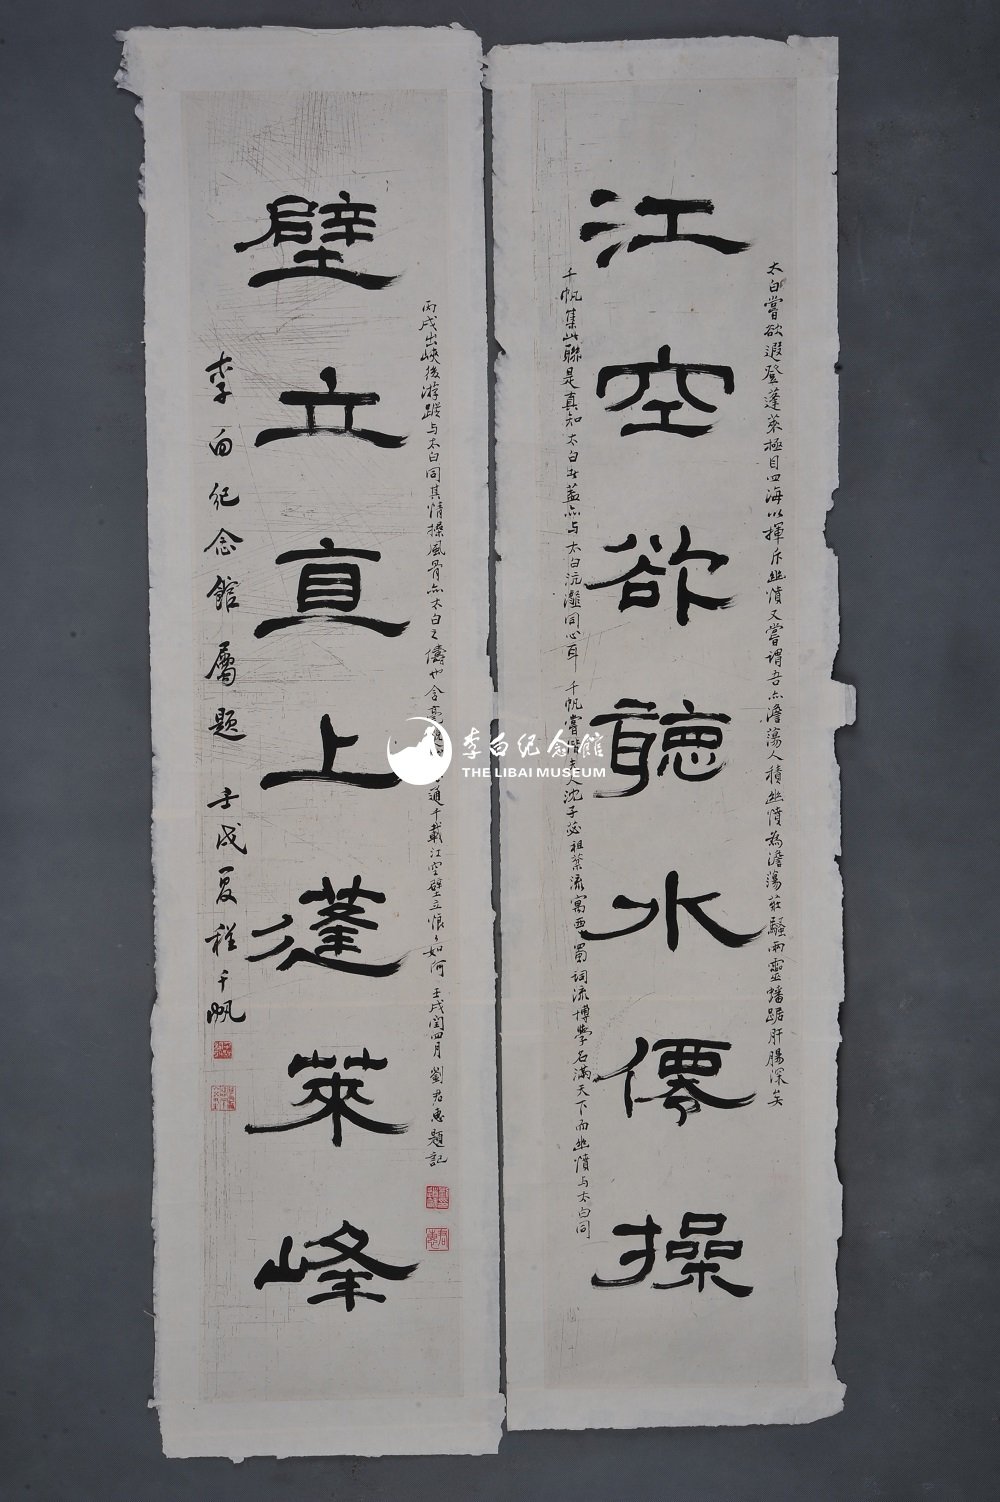 江空欲聽水僊操
太白嘗欲遐登蓬萊極目四海以揮斥幽憤又嘗謂吾亦澹蕩人積幽憤為澹蕩莊騷兩靈蟠踞肝腸深矣
千帆集此聯是真知太白者蓋亦与太白沆瀣同心耳 千帆嘗偕 沈子苾祖棻流寓西蜀詞流博學名滿天下而幽憤与太白同
壁立直上蓬萊峰
丙戌出峽後游蹤与太白同其情操風骨亦太白之儔也含毫 通千載江空壁立悵悵如何 壬戌閏四月 劉君惠題記
李白纪念館屬題 壬戌夏程千帆
李白纪念館
THE LIBAI MUSEUM